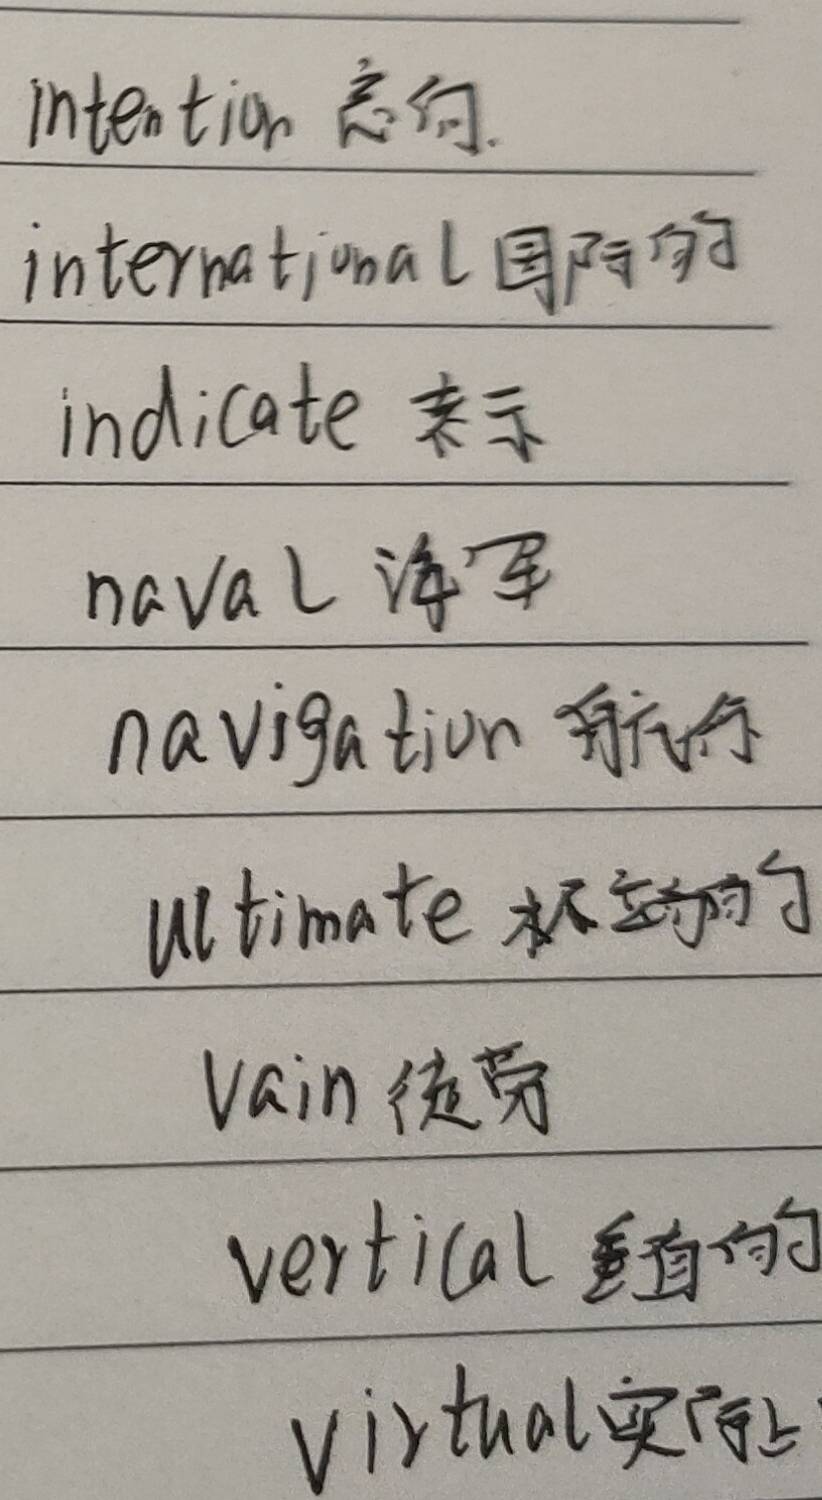 intention 意向.
international 国际的
indicate 表示
naval 海军
navigation 航行
ultimate 极端的
vain 徒劳
vertical 垂直的
virtual 实际上